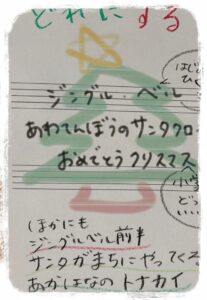 どれにする
ジングル・ベル
あわてんぼうのサンタクロ
おめでとうクリスマス
ほかにも
ジングルベル前半
サンタがまちにやってくる
あかはなの トナカイ